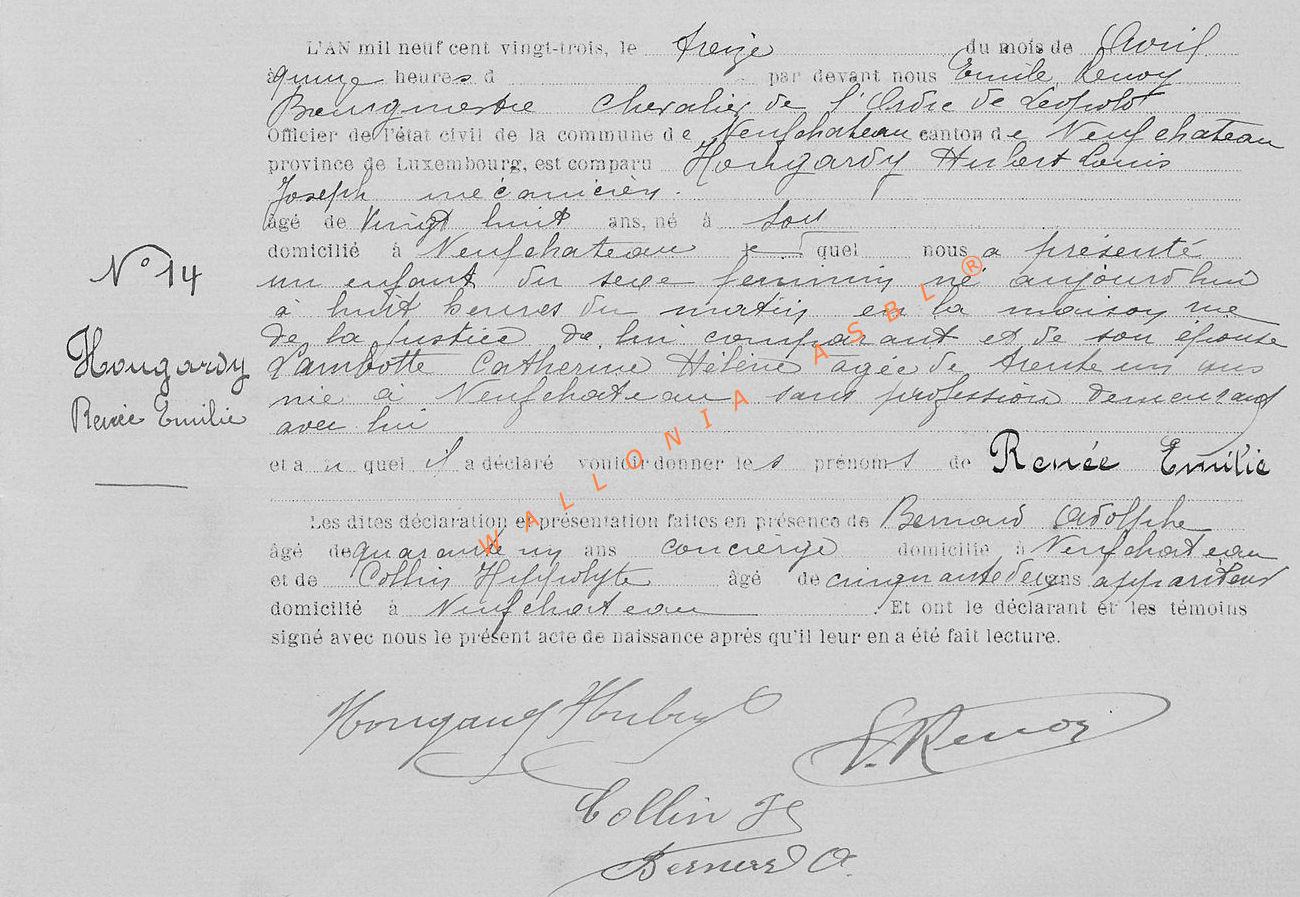 L'AN mil neuf cent vingt-trois, le treize du mois de Avril
à quinze heures d par devant nous Emile Renoy
Bourgmestre Chevalier de l'Ordre de Léopold
Officier de l'état civil de la commune de Neufchateau canton de Neufchateau
province de Luxembourg, est comparu Hongardy Hubert Louis
Joseph mécanicien.
âgé de vingt huit ans, né à
domicilié à Neufchateau le quel nous a présenté
un enfant du sexe féminin né aujourd'hui
à huit heures du matin en la maison rue
de la Justice de lui comparant et de son épouse
Lambotte Catherine Hélène agée de trente un ans
née à Neufchateau sans profession demeurant
avec lui
N° 14
Hongardy
Renée Emilie
et a u quel il a déclaré vouloir donner les prénoms de Renée Emilie
Les dites déclaration et présentation faites en présence de Bernard Adolphe
âgé de quarante un ans concierge domicilié à Neufchateau
et de Collin Hippolyte âgé de cinquante deux ans appariteur
domicilié à Neufchateau . Et ont le déclarant et les témoins
signé avec nous le présent acte de naissance après qu'il leur en a été fait lecture.
Hongardy Hubert
E. Renoy
Collin H
Bernard A.
WALLONIA ASBL ®